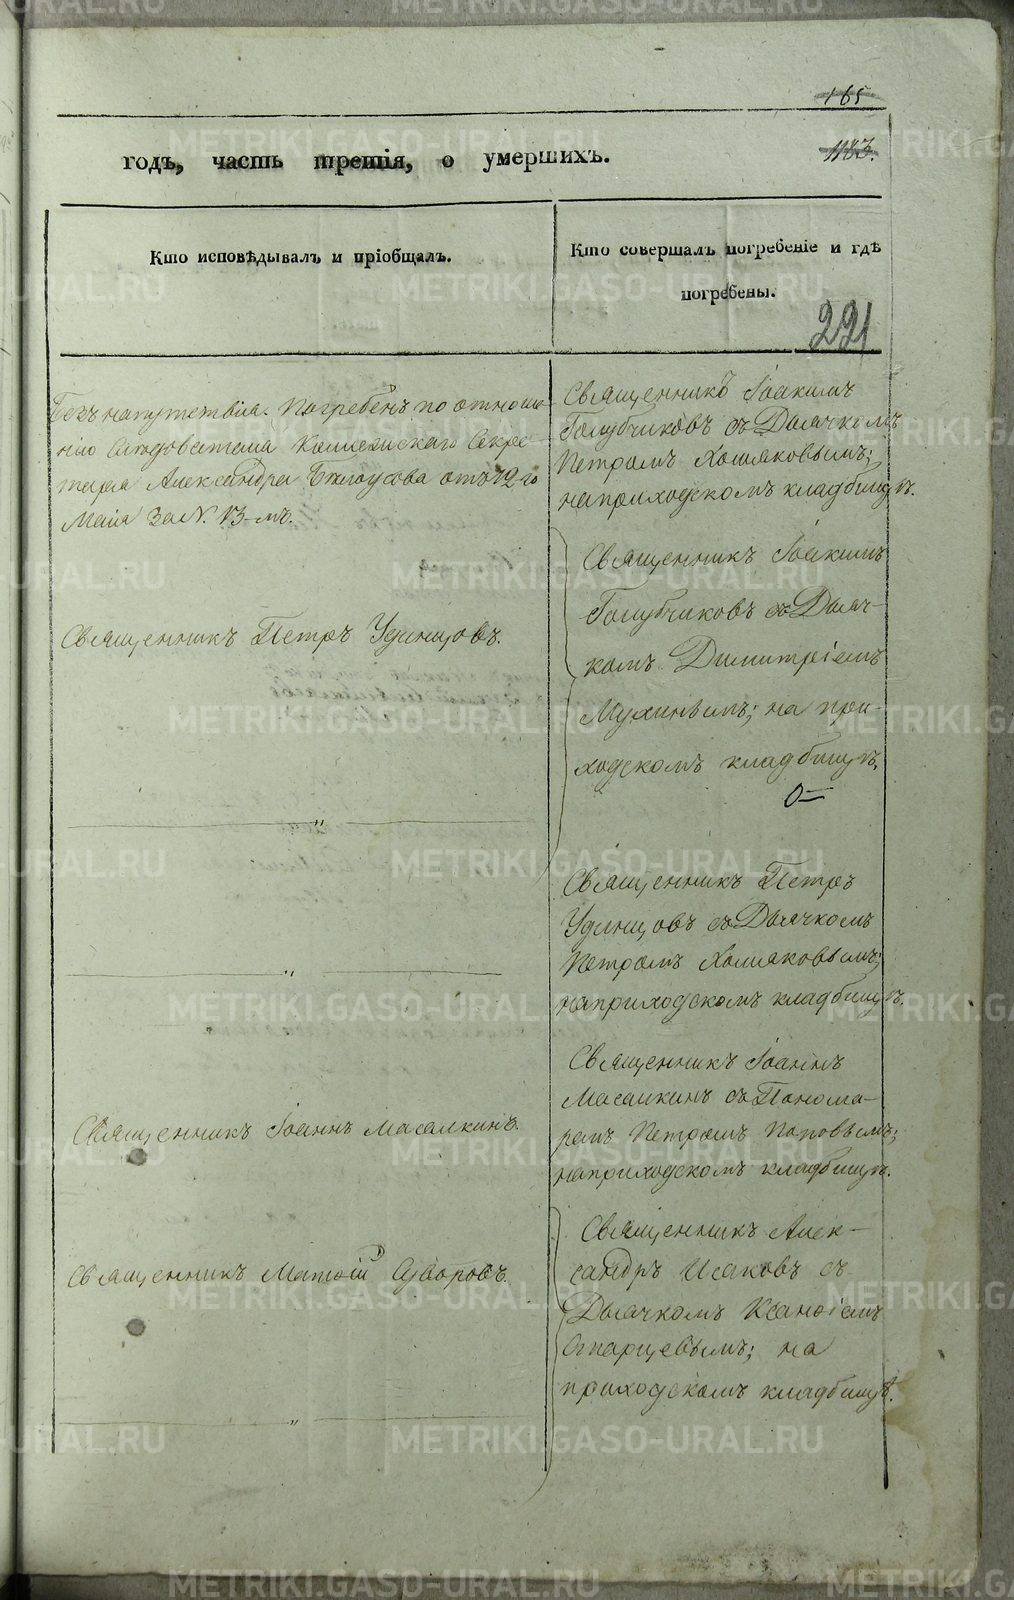 165
годъ, часть третія, о умершихъ.
1183.
Кто исповѣдывалъ и пріобщалъ.
Кто совершалъ погребеніе и гдѣ
погребены.
221
Безъ напутствія. Погребенъ по отноше-
нію Слѣдователя Коллежскаго Секре-
таря Александра Бѣлоусова отъ 12го
Маія за N. 13-мъ.
Священникъ Петръ Удинцовъ.
"
"
Священникъ Іоаннъ Масалкинъ.
Священникъ Матѳій Суворовъ.
"
Священникъ Іоакимъ
Голубчиковъ съ Дьячкомъ
Петромъ Хомяковымъ;
на приходскомъ кладбищѣ.
Священникъ Іоакимъ
Голубчиковъ съ Дьяч-
комъ Димитріемъ
Мухинымъ; на при-
ходскомъ кладбищѣ.
Священникъ Петръ
Удинцовъ съ Дьячкомъ
Петромъ Хомяковымъ;
на приходскомъ кладбищѣ.
Священникъ Іоаннъ
Масалкинъ съ Понома-
ремъ Петромъ Поповымъ;
на приходскомъ кладбищѣ.
Священникъ Алек-
сандръ Исаковъ съ
Дьячкомъ
Старцевымъ; на
приходскомъ кладбищѣ.
METRIKI.GASO-URAL.RU